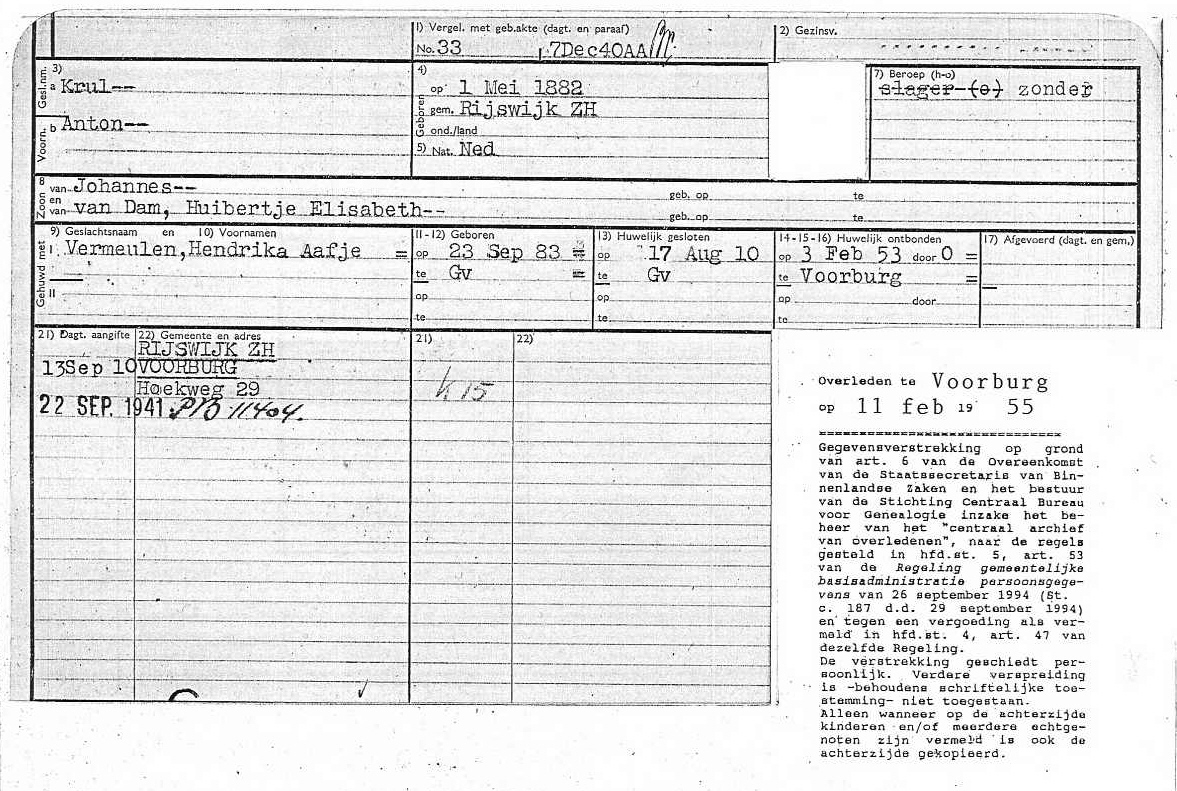 1) Vergel. met geb.akte (dagt. en paraaf)
No. 33 17Dec40AA
2) Gezinsv.
Gesl.nm. 3) a Krul--
Voorn. b Anton--
4) Geboren op 1 Mei 1882
gem. Rijswijk ZH
ond./land
5) Nat. Ned
7) Beroep (h-o)
slager (o) zonder
8 Zoon van Johannes-- geb. op te
en van van Dam, Huibertje Elisabeth-- geb. op te
Gehuwd met
9) Geslachtsnaam en 10) Voornamen
11-12) Geboren
13) Huwelijk gesloten
14-15-16) Huwelijk ontbonden
17) Afgevoerd (dagt. en gem.)
I Vermeulen,Hendrika Aafje = op 23 Sep 83 = op 17 Aug 10 op 3 Feb 53 door O =
te Gv = te Gv te Voorburg =
II op op op door
te te te
21) Dagt. aangifte 22) Gemeente en adres 21) 22)
RIJSWIJK ZH
13Sep 10 VOORBURG
Hoekweg 29 K 15
22 SEP. 1941 PB 11404.
Overleden te Voorburg
op 11 feb 19 55
==============================
Gegevensverstrekking op grond
van art. 6 van de Overeenkomst
van de Staatssecretaris van Bin-
nenlandse Zaken en het bestuur
van de Stichting Centraal Bureau
voor Genealogie inzake het be-
heer van het "centraal archief
van overledenen", naar de regels
gesteld in hfd.st. 5, art. 53
van de Regeling gemeentelijke
basisadministratie persoonsgege-
vens van 26 september 1994 (St.
c. 187 d.d. 29 september 1994)
en tegen een vergoeding als ver-
meld in hfd.st. 4, art. 47 van
dezelfde Regeling.
De verstrekking geschiedt per-
soonlijk. Verdere verspreiding
is -behoudens schriftelijke toe-
stemming- niet toegestaan.
Alleen wanneer op de achterzijde
kinderen en/of meerdere echtge-
noten zijn vermeld is ook de
achterzijde gekopieerd.